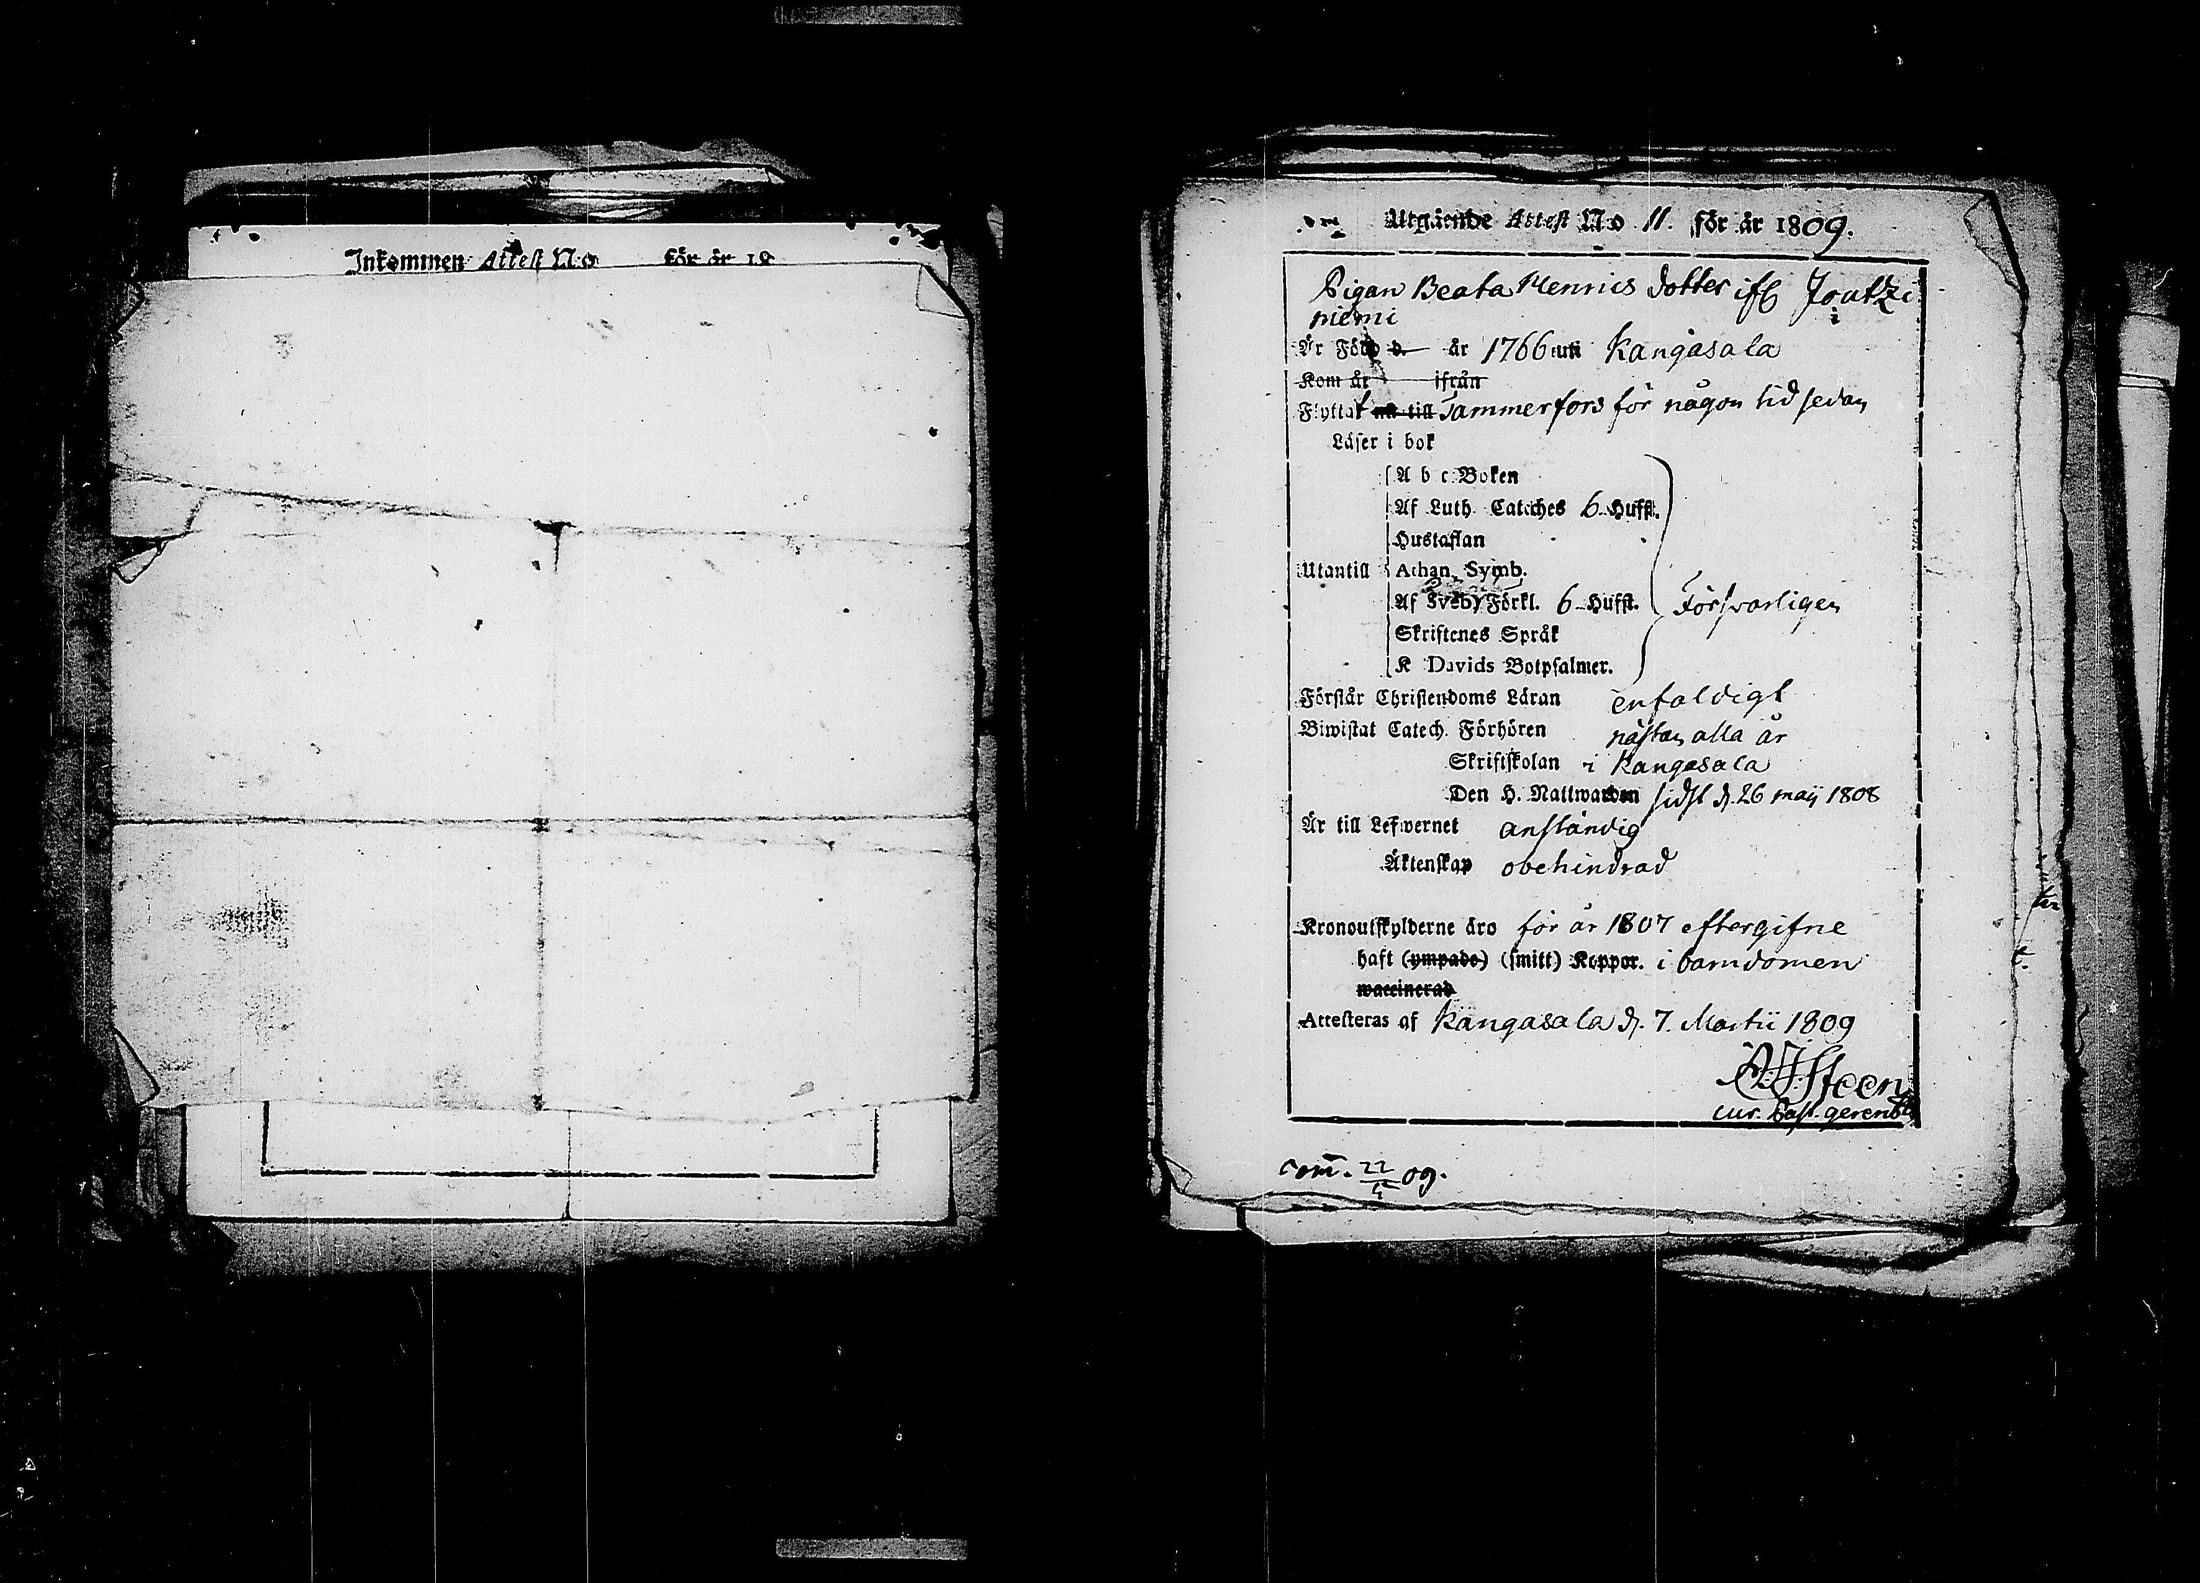 Inkommen Attest No för år 18
Utgående Attest No 11. för år 1809.
Pigan Beata Henrics dotter ifr Joutzi
niemi
Är Född d. år 1766 uti Kangasala
Kom år ifrån
Flyttat nu till Tammerfors för någon tid sedan
Läser i bok
A b c Boken
Af Luth. Cateches 6 Hufst.
Hustaflan
Utantill Athan. Symb.
Af Sveb. Förkl. 6 Hufst. Försvarligen
Skriftenes Språk
K Davids Botpsalmer.
Förstår Christendoms Läran enfaldigt
Biwistat Catech. Förhören nästan alla år
Skriftskolan i Kangasala
Den H. Nattwarden sidst d. 26 maij 1808
Är till Lefwernet anständig
Äktenskap obehindrad
Kronoutskylderne äro för år 1807 eftergifne
haft (ympade) (smitt) Koppor. i barndomen
waccinerad
Attesteras af Kangasala d. 7. Martii 1809
Steen
cur. Past. gerens
com. 22/4 09.